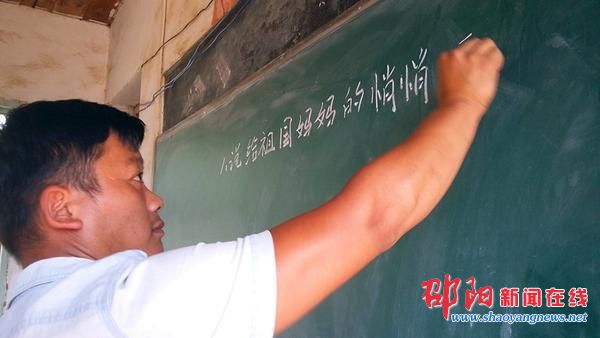 1、说给祖国妈妈的悄悄
邵阳新闻在线
www.shaoyangnews.net